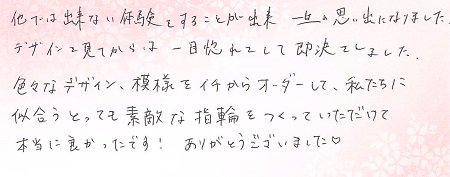 他では出来ない体験をすることが出来 一生の思い出になりました。
デザインを見てからは一目惚れをして即決をしました。
色々なデザイン、模様をイチからオーダーして、私たちに
似合うとっても素敵な指輪をつくっていただけて
本当に良かったです! ありがとうございました♡